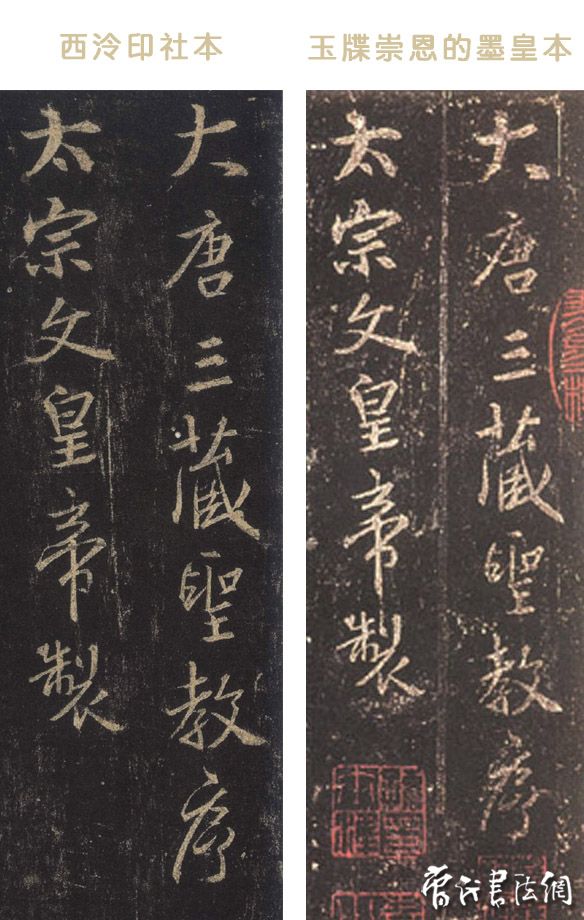 西泠印社本
玉牒崇恩的墨皇本
大唐三藏聖教序
太宗文皇帝製
大唐三藏聖教序
太宗文皇帝製